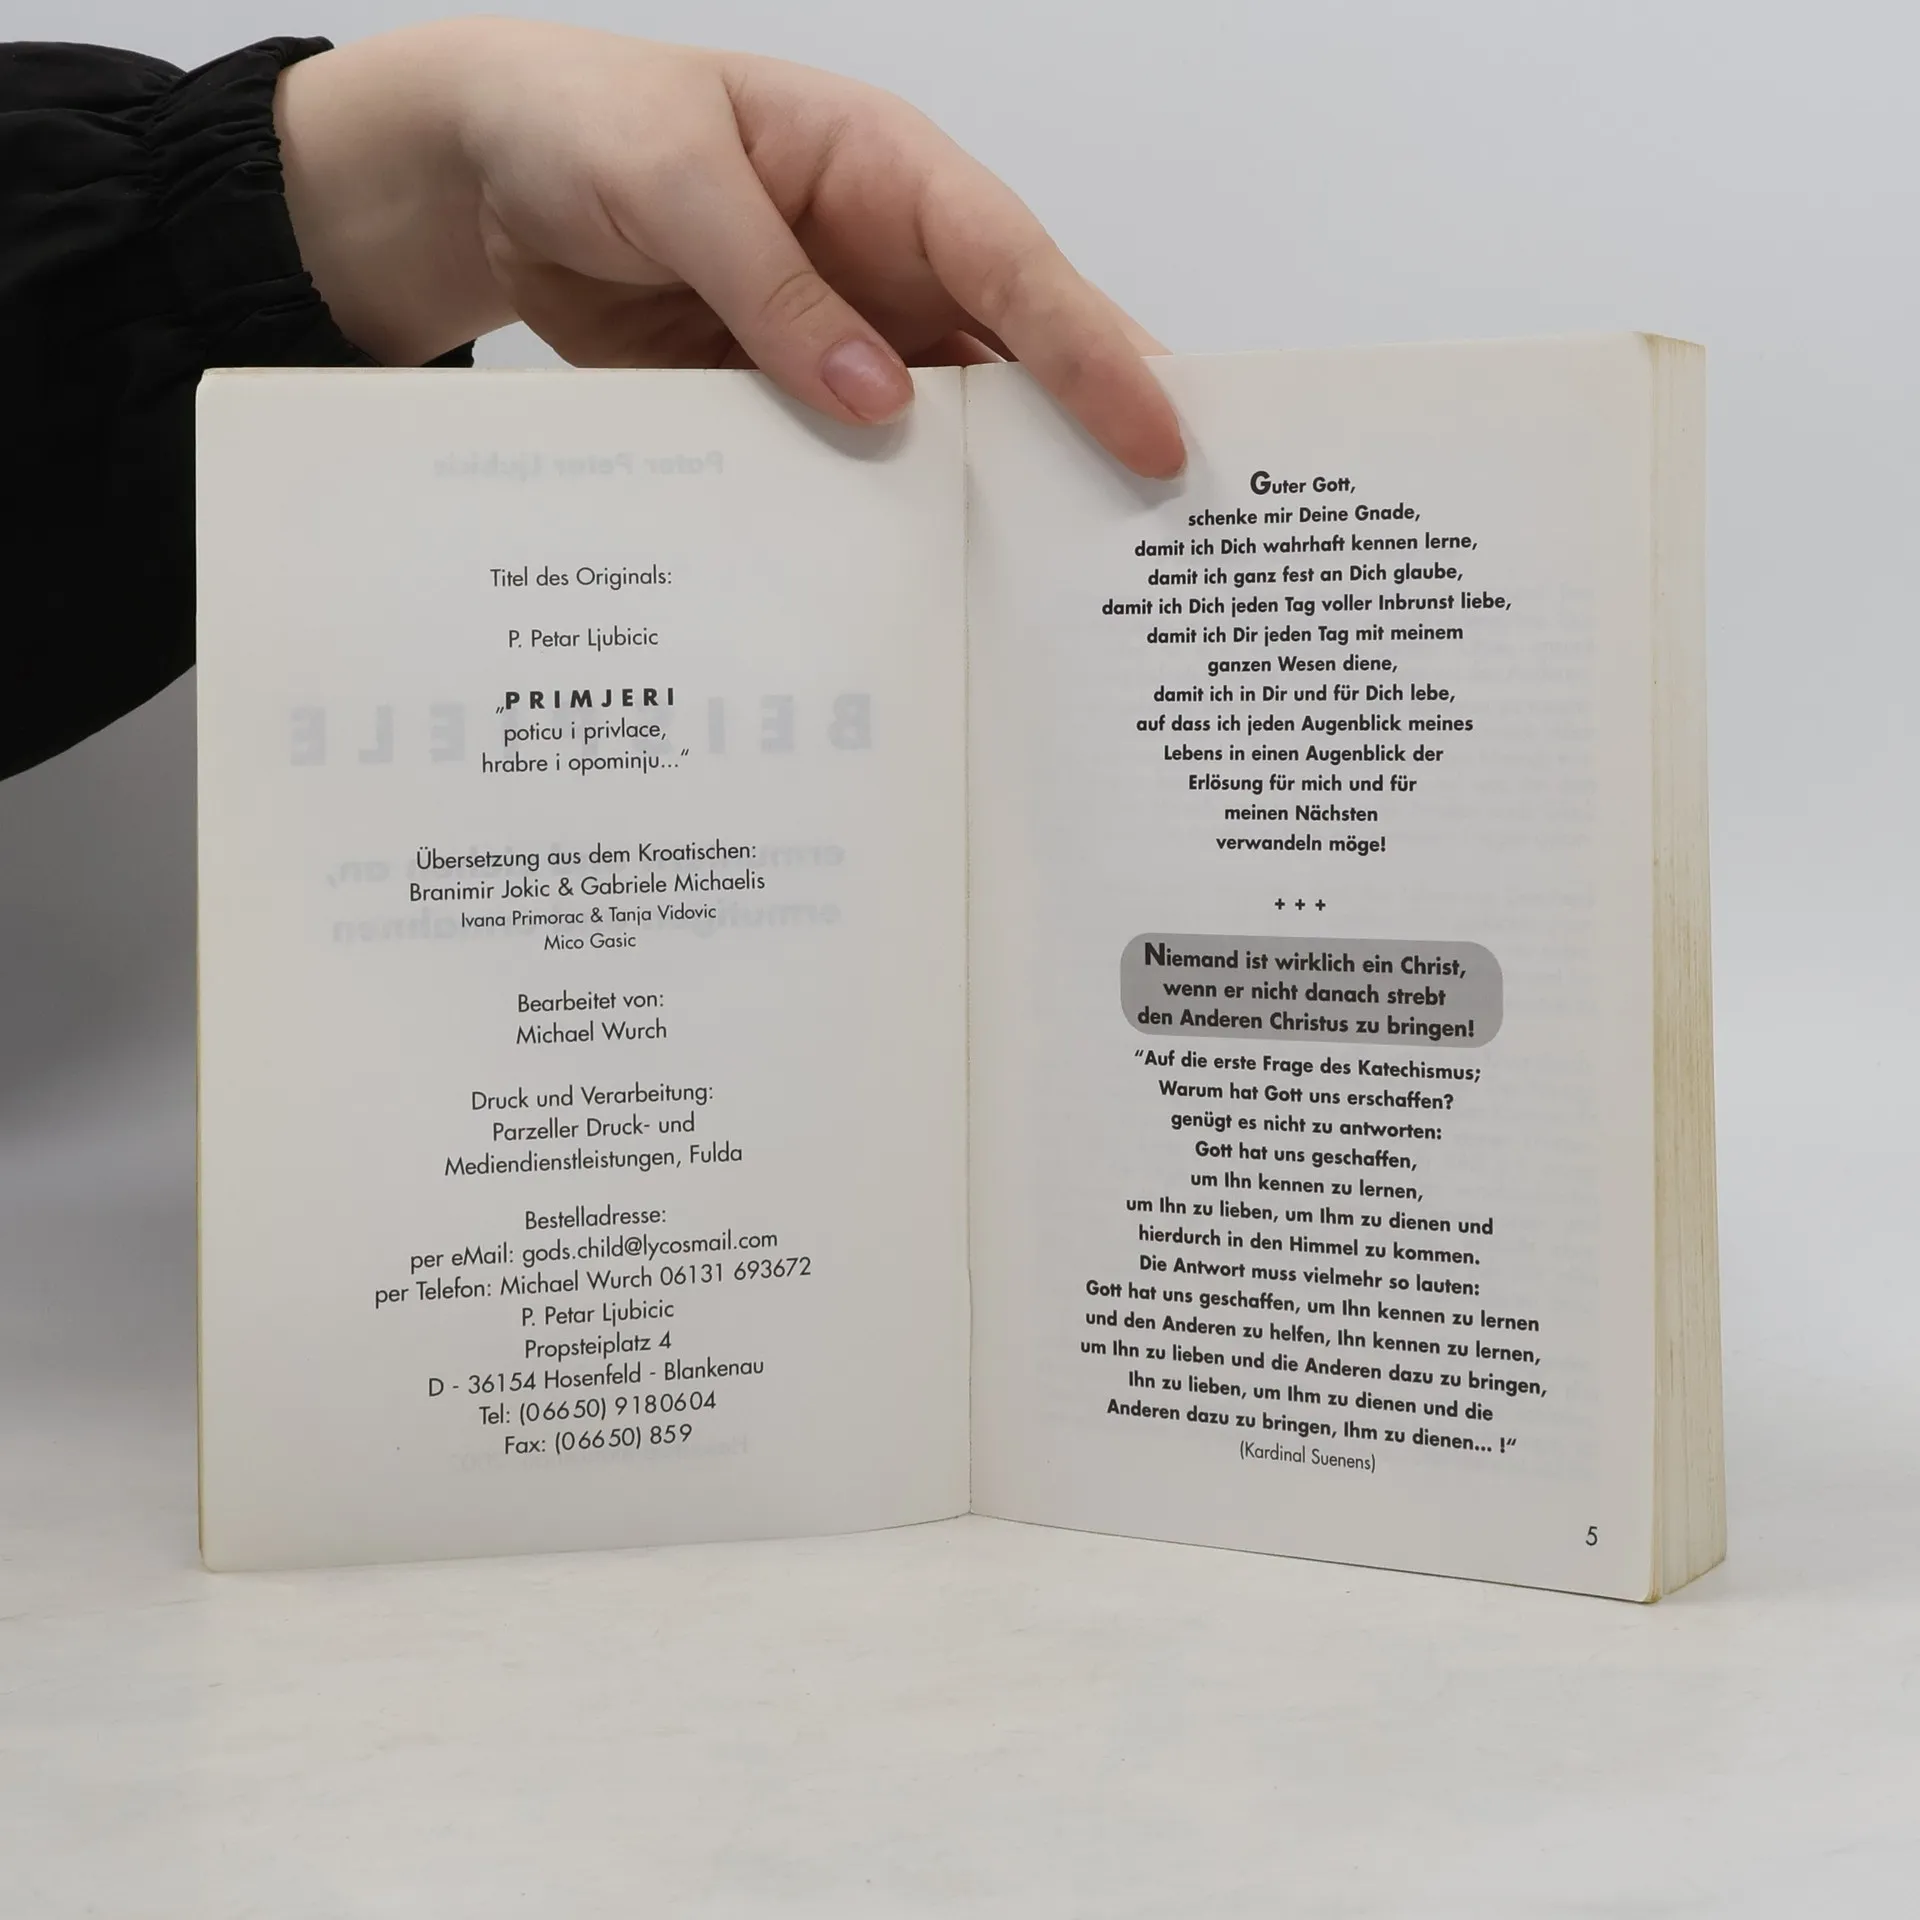 Titel des Originals:
P. Petar Ljubicic
„PRIMJERI
poticu i privlace,
hrabre i opominju...“
Übersetzung aus dem Kroatischen:
Branimir Jokic & Gabriele Michaelis
Ivana Primorac & Tanja Vidovic
Mico Gasic
Bearbeitet von:
Michael Wurch
Druck und Verarbeitung:
Parzeller Druck- und
Mediendienstleistungen, Fulda
Bestelladresse:
per eMail: gods.child@lycosmail.com
per Telefon: Michael Wurch 06131 693672
P. Petar Ljubicic
Propsteiplatz 4
D - 36154 Hosenfeld - Blankenau
Tel: (06650) 9180604
Fax: (06650) 859
Guter Gott,
schenke mir Deine Gnade,
damit ich Dich wahrhaft kennen lerne,
damit ich ganz fest an Dich glaube,
damit ich Dich jeden Tag voller Inbrunst liebe,
damit ich Dir jeden Tag mit meinem
ganzen Wesen diene,
damit ich in Dir und für Dich lebe,
auf dass ich jeden Augenblick meines
Lebens in einen Augenblick der
Erlösung für mich und für
meinen Nächsten
verwandeln möge!
+ + +
Niemand ist wirklich ein Christ,
wenn er nicht danach strebt
den Anderen Christus zu bringen!
“Auf die erste Frage des Katechismus;
Warum hat Gott uns erschaffen?
genügt es nicht zu antworten:
Gott hat uns geschaffen,
um Ihn kennen zu lernen,
um Ihn zu lieben, um Ihm zu dienen und
hierdurch in den Himmel zu kommen.
Die Antwort muss vielmehr so lauten:
Gott hat uns geschaffen, um Ihn kennen zu lernen
und den Anderen zu helfen, Ihn kennen zu lernen,
um Ihn zu lieben und die Anderen dazu zu bringen,
Ihn zu lieben, um Ihm zu dienen und die
Anderen dazu zu bringen, Ihm zu dienen... !“
(Kardinal Suenens)
5